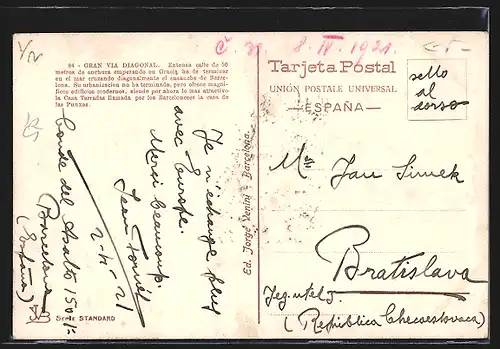 Č. n. 8. IV. 1921.
84 - GRAN VIA DIAGONAL. Extensa calle de 50
metros de anchura empezando en Gracia ha de terminar
en el mar cruzando diagonalmente el ensanche de Barce-
lona. Su urbanización no ha terminado, pero ofrece magní-
ficos edificios modernos, siendo por ahora lo mas atractivo
la Casa Tarradas llamada por los Barceloneses la casa de
las Punxas.
Je n'echange plus
avec Europe.
Merci beaucoup
Jean
2-4-21
Conde del Asalto 150-1º
Barcelona
(España)
JVB
Serie STANDARD
Ed. Jorge Venini - Barcelona.
Tarjeta Postal
UNIÓN POSTALE UNIVERSAL
—ESPAÑA—
sello
al
dorso
Jan Simek
Bratislava
(República Checoeslovaca)